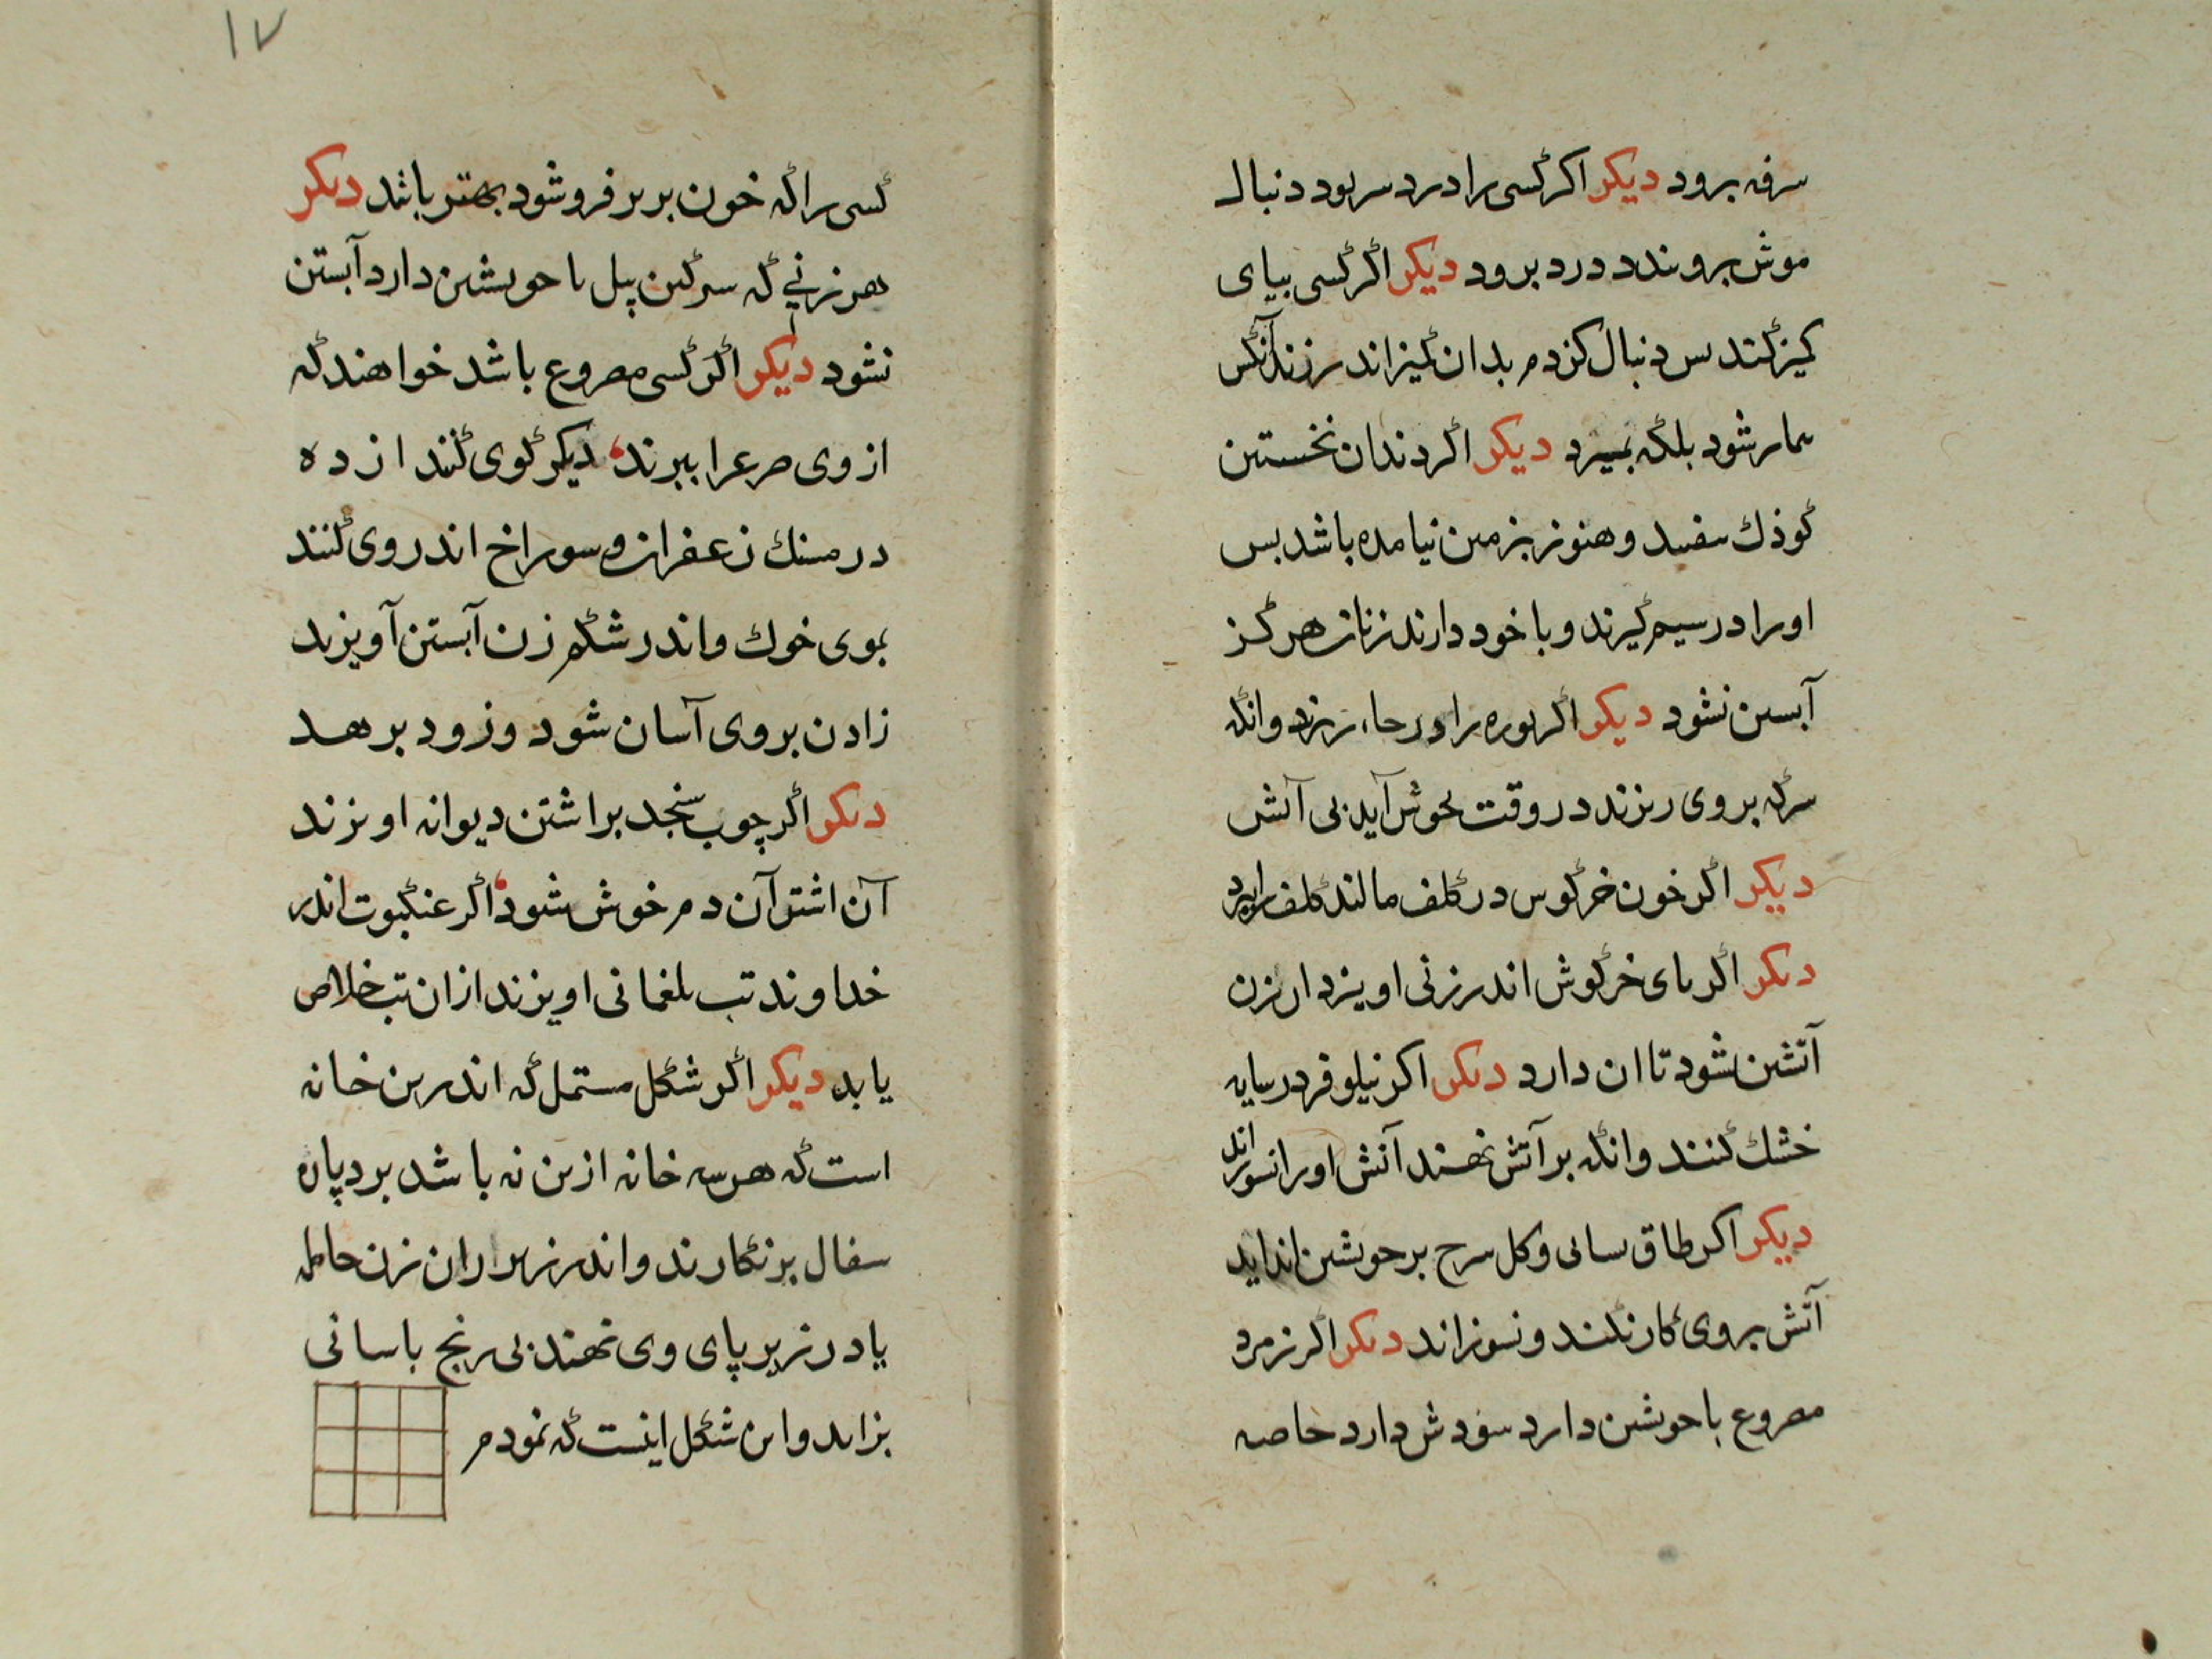 سرفه برود دیکر اکر کسی را درد سر بود دنبال
موش بروبندد درد برود دیکر اکر کسی بپای
کمیز کند س دنبال کزدم بدان کمیز اندر زند آنکس
سمار شود بلکه بمیرد دیکر اکر دندان نخستین
کوذك سفید و هنوز بزمین نیامده باشد بس
اورا در سیم کیرند و با خود دارند زنان هرکز
آبستن نشود دیکر اکر بوره را در حا، ریزد وانکه
سرکه بروی ریزند در وقت بجوش آید بی آتش
دیکر اکر خون خرکوس در کلف مالند کلف را ببرد
دیکر اکر بای خرکوش اندر زنی اویزد ان زن
آتشن نشود تا ان دارد دیکر اکر نیلوفر در سایه
خشك کنند وانکه بر آتش نهند آتش اورا نسوزاند
دیکر اکر طاق سانی و کل سرح بر خویشتن انداید
آتش بروی کار نکند و نسوزاند دیکر اکر زمرد
مصروع با خویشتن دارد سودش دارد خاصه
۱۷
کسی را که خون بربر فروشود بهتر باشد دیکر
هر زنی که سرکین پیل با خویشتن دارد آبستن
نشود دیکر اکر کسی مصروع باشد خواهند که
از وی صرع را ببرند، دیکر کوی کنند از ده
درمسنك زعفران و سوراخ اندر وی کنند
بموی خوك و اندر شکم زن آبستن آویزند
زادن بروی آسان شود و زود برهد
دیکر اکر چوب سنجد بر اشتن دیوانه اویزند
آن اشتر آن دم خوش شود، اکر عنکبوت اندر
خداوند تب بلغمانی اویزند ازان تب خلاص
یابد دیکر اکر شکل مستمل که اندرین خانه
است که هر سه خانه ازین نه باشد بر دپاره
سفال برنکارند و اندر زیر ان زن حامله
یا در زیر پای وی نهند بی رنج باسانی
بزاید واین شکل اینست که نمودم